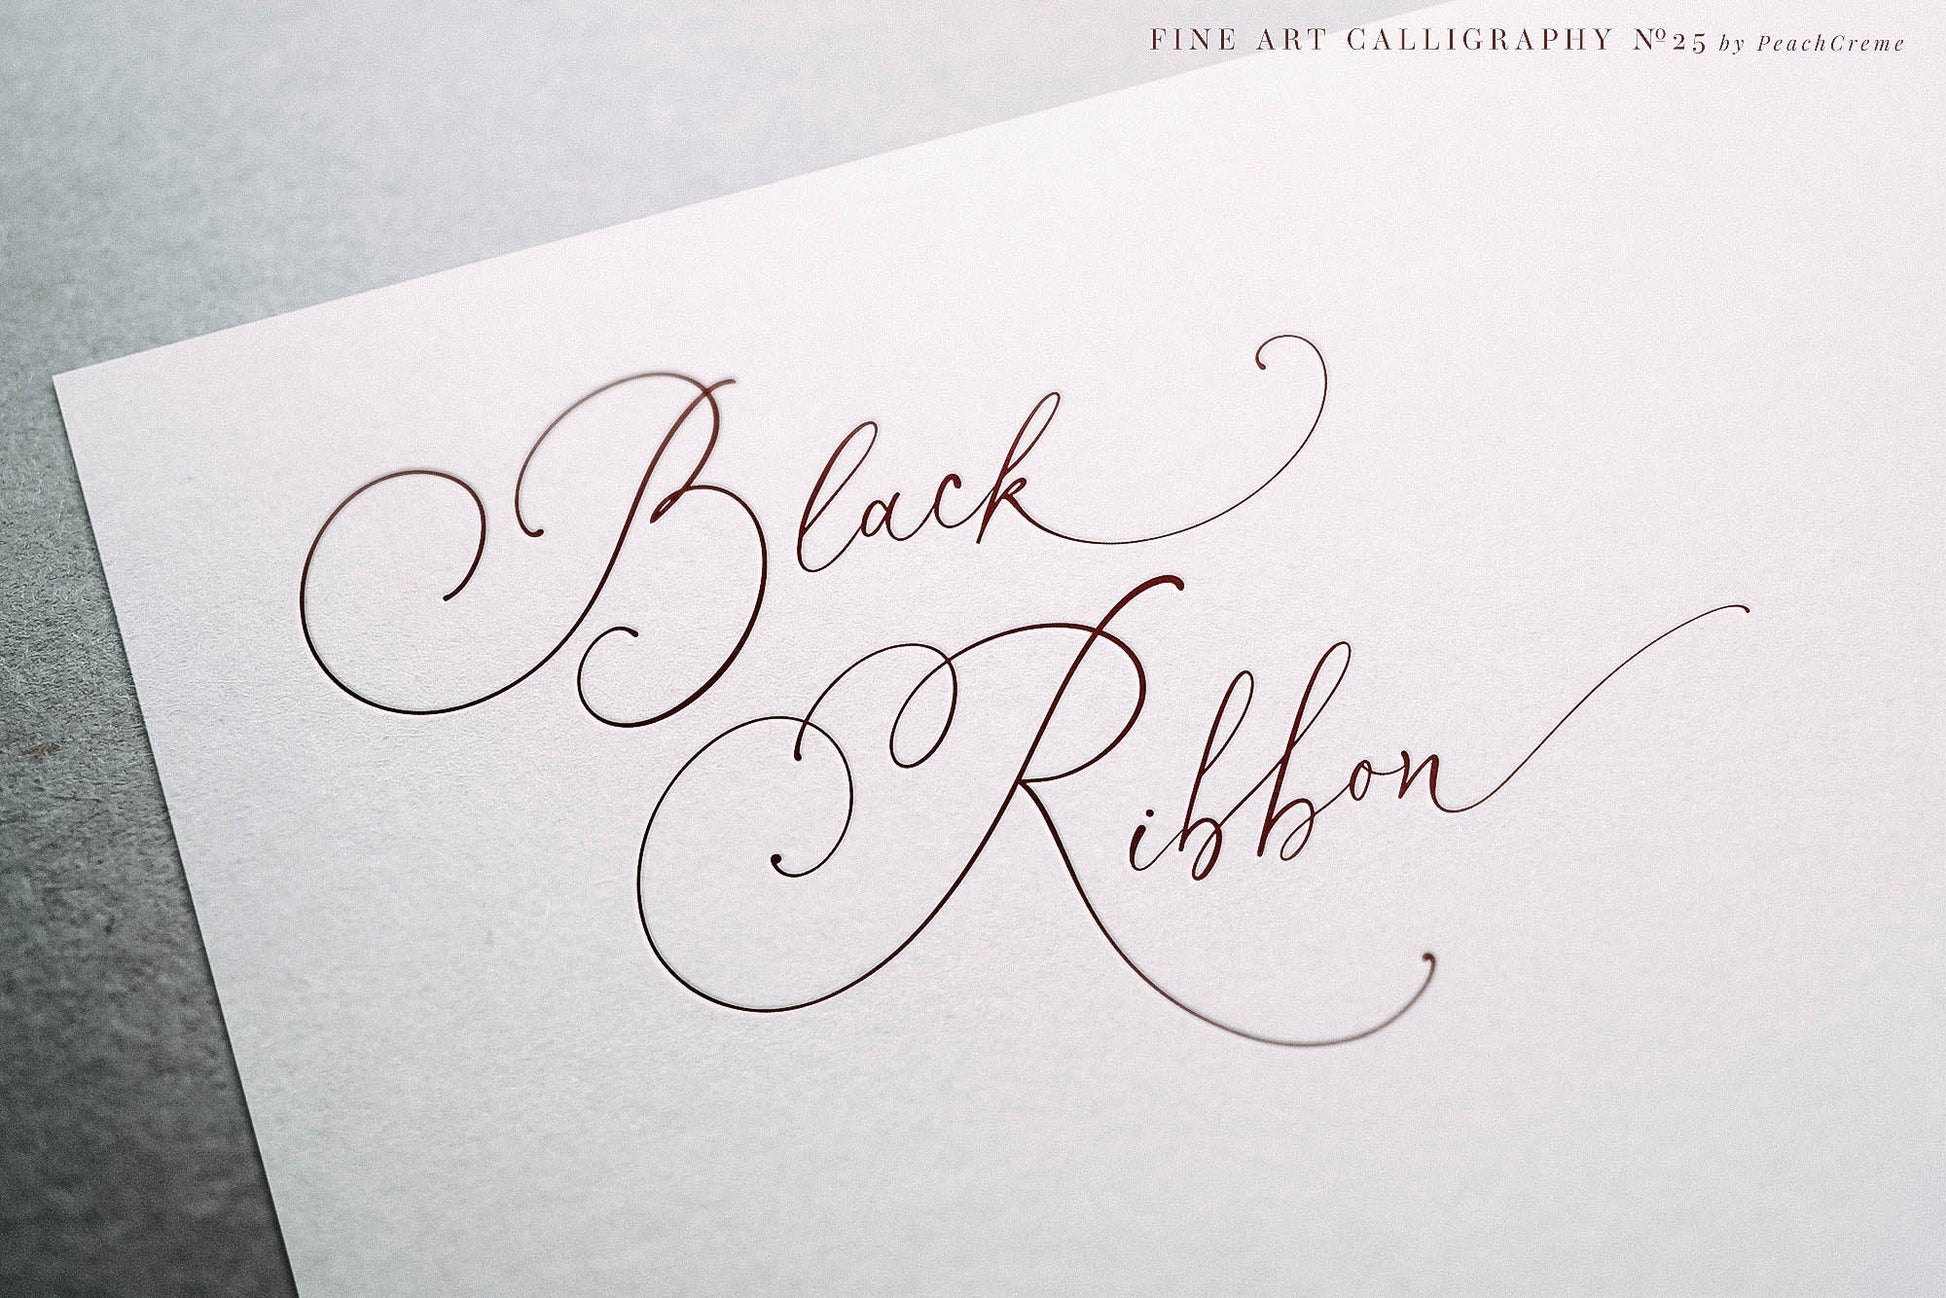 FINE ART CALLIGRAPHY Nº25 by PeachCreme
Black
Ribbon